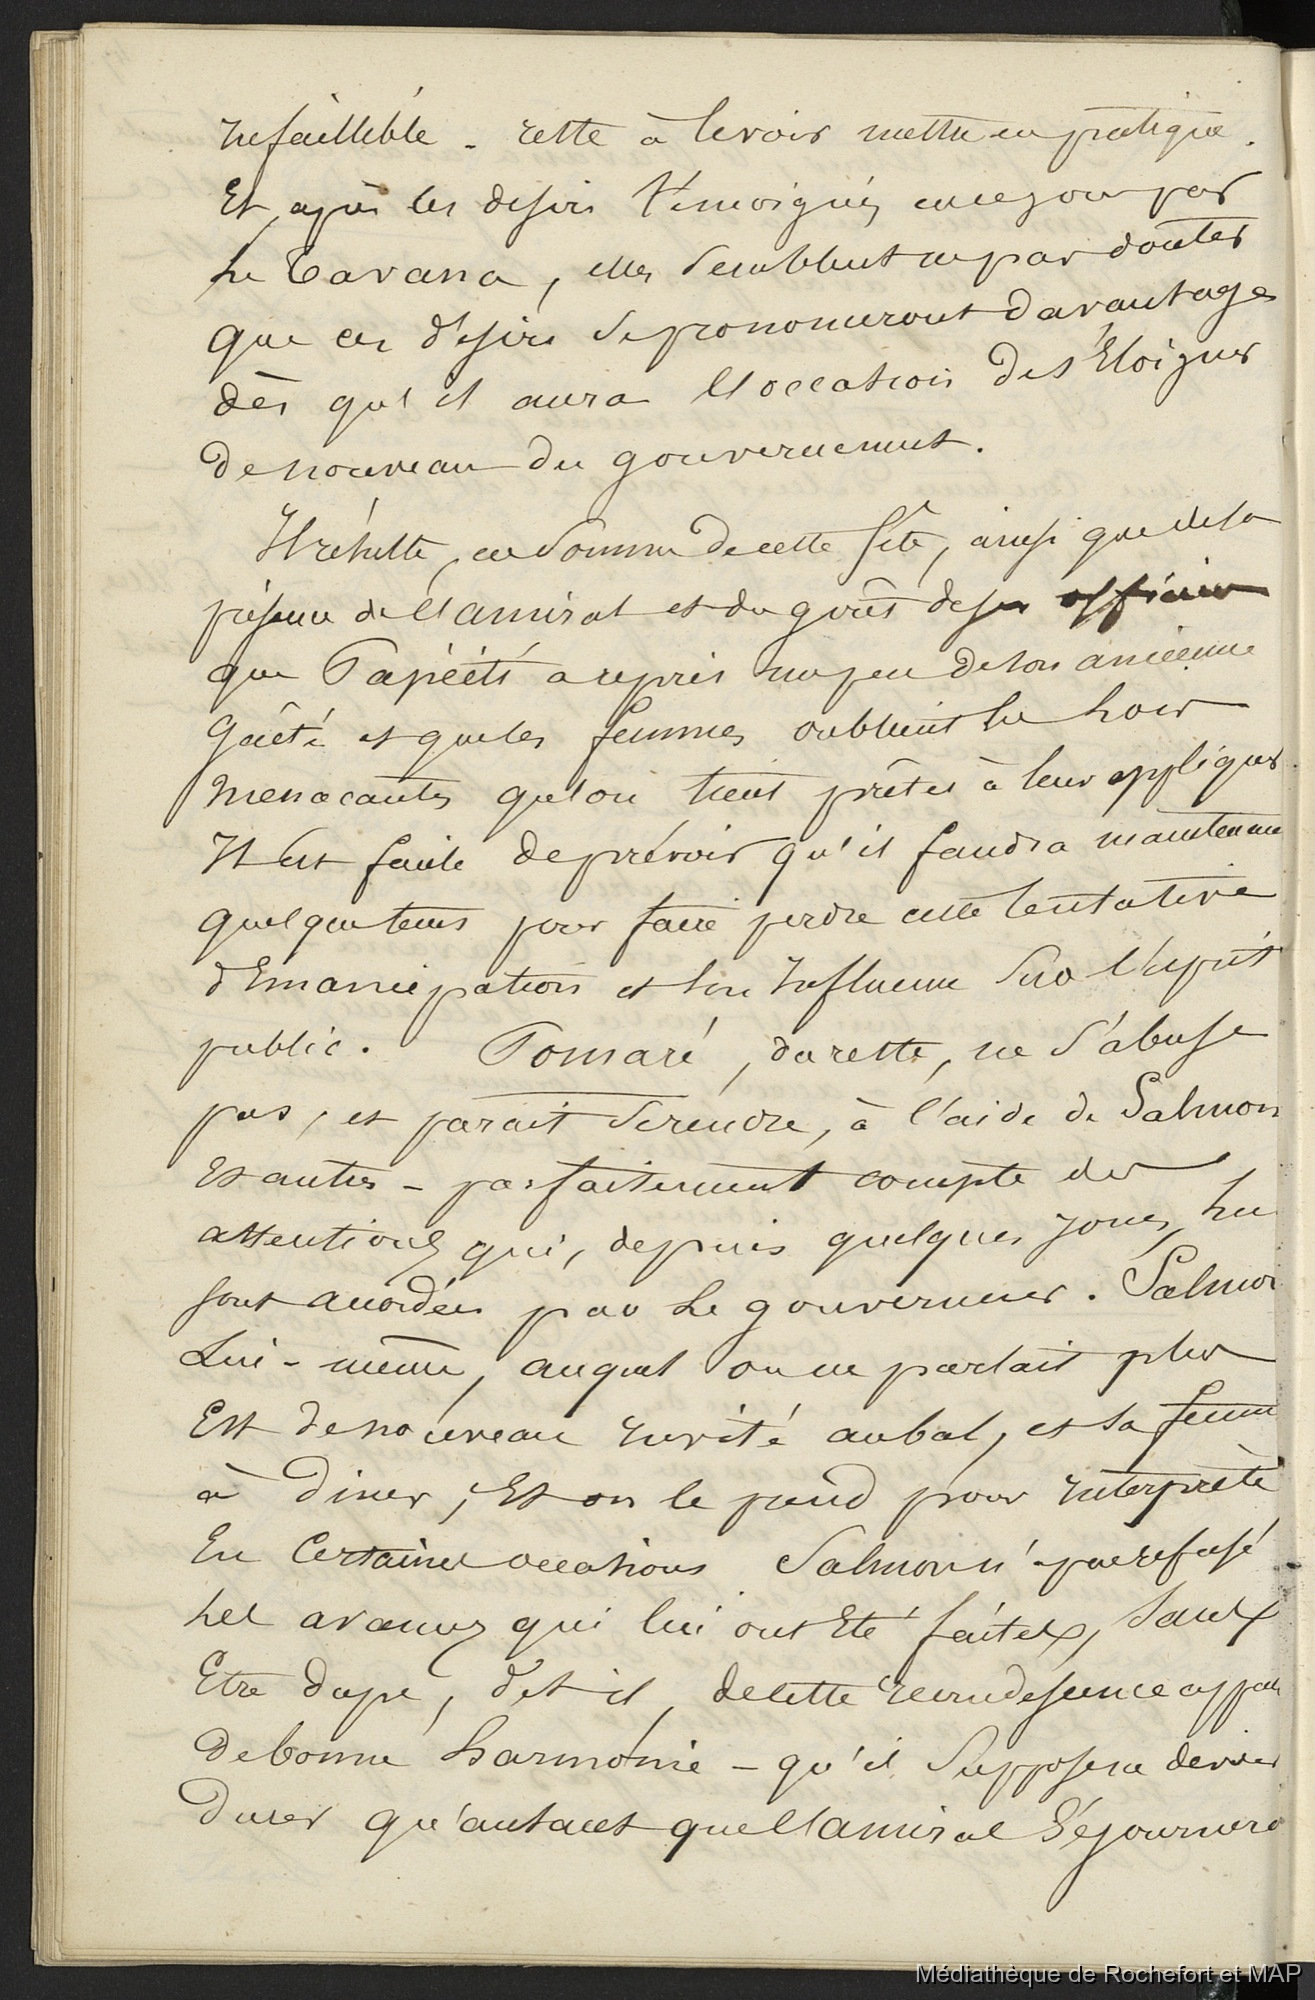 infaillible - reste à le voir mettre en pratique.
Et après les désirs témoignés en ce jour par
le Tavana, elles semblent ne pas douter
que ces désirs se prononceront davantage
dès qu'il aura l'occasion de s'éloigner
de nouveau du gouvernement.
Il résulte, en somme de cette fête, ainsi que de la
présence de l'amiral et du goût de ses officiers
que Papéété a repris un peu de son ancienne
gaété et que les femmes oublient les lois
menacantes qu'on tient prêtes à leur appliquer.
Il est facile de prévoir qu'il faudra maintenant
quelque tems pour faire perdre cette tentative
d'émancipation et son influence sur l'esprit
public. Pomaré, du reste, ne s'abuse
pas, et parait se rendre, à l'aide de Salmon
et autres - parfaitement compte des
attentions qui, depuis quelques jours, lui
sont accordées par le gouverneur. Salmon
lui-même, auquel on ne parlait plus
est de nouveau invité au bal, et sa femme
à diner, et on le prend pour interprète
en certaines occasions Salmon n'a pas refusé
les avances qui lui ont été faites, sans
être dupe, dit-il, de cette recrudescence
de bonne harmonie - qu'il suppose ne devoir
durer qu'autant que l'amiral séjournera
Médiathèque de Rochefort et MAP